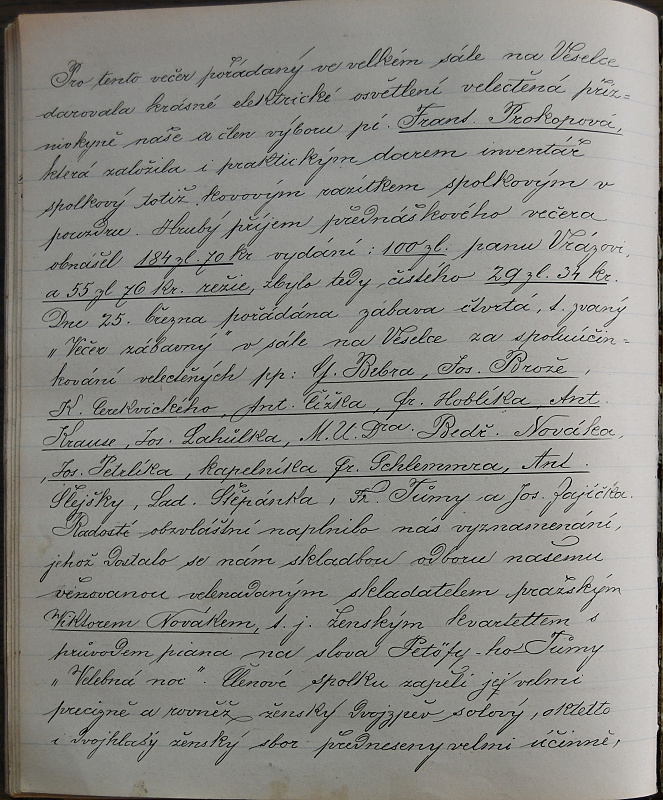 Pro tento večer pořádaný ve velkém sále na Veselce
darovala krásné elektrické osvětlení velectěná příz=
nivkyně naše a člen výboru pí. Frant. Prokopová,
která založila i praktickým darem inventář
spolkový totiž kovovým razítkem spolkovým v
pouzdru. Hrubý příjem přednáškového večera
obnášel 184 zl. 70 kr vydání: 100 zl. panu Vrázovi,
a 55 zl 76 kr. režie, zbylo tedy čistého 29 zl. 34 kr.
Dne 25. března pořádána zábava čtvrtá, t. zvaný
„Večer zábavný" v sále na Veselce za spoluúčin=
kování velectěných pp: G. Bebra, Jos. Brože,
K. Cerekvického, Ant. Čížka, Fr. Hoblíka, Ant.
Krause, Jos. Lahůlka, M.U.Dra. Bedř. Nováka,
Jos. Petrlíka, kapelníka Fr. Schlemmra, Ant.
Šlejšky, Lad. Štěpánka, Fr. Tůmy a Jos. Zajíčka.
Radostí obzvláštní naplnilo nás vyznamenání,
jehož dostalo se nám skladbou odboru našemu
věnovanou velenadaným skladatelem pražským
Viktorem Novákem, t. j. ženským kvartettem s
průvodem piana na slova Petöfy-ho Tůmy
„Velebná noc". Členové spolku zapěli jej velmi
precizně a rovněž ženský dvojzpěv solový, oktetto
i dvojhlasý ženský sbor předneseny velmi účinně,